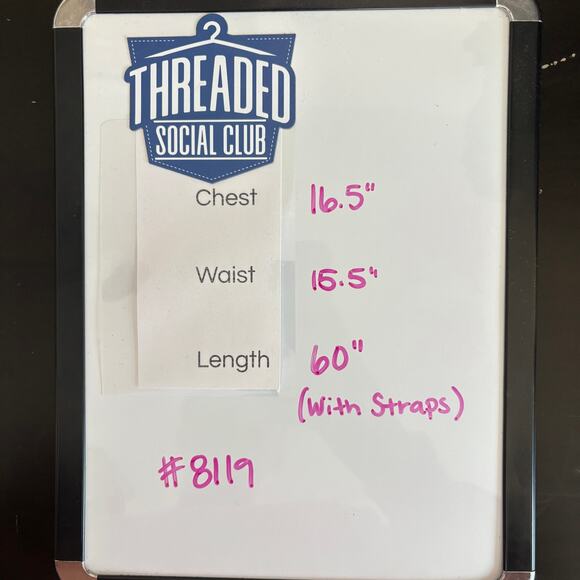 THREADED
SOCIAL CLUB
Chest 16.5"
Waist 15.5"
Length 60"
(With Straps)
#8119